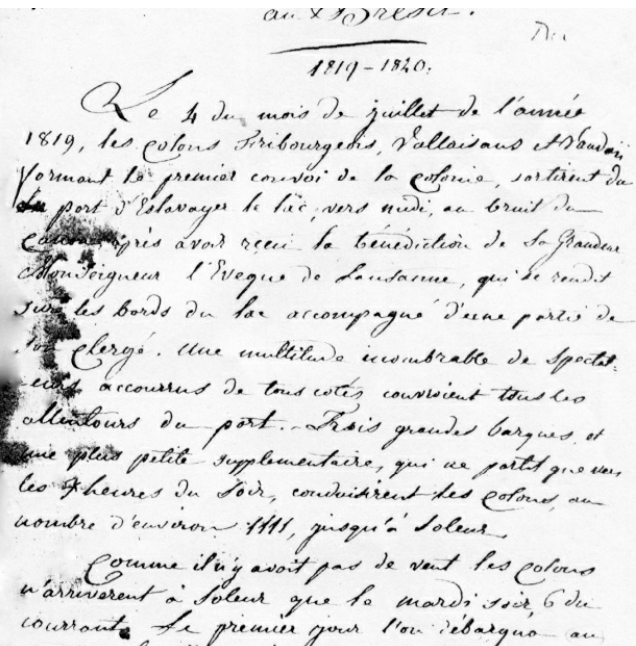 au Brésil.
1819-1820.
Le 4 du mois de juillet de l'année
1819, les colons Fribourgeois, Vallaisans et Vaudois
formant le premier convoi de la colonie, sortirent du
port d'Estavayer le lac, vers midi, au bruit du
canon après avoir reçu la bénédiction de Sa Grandeur
Monseigneur l'Eveque de Lausanne, qui se rendit
sur les bords du lac accompagné d'une partie de
son clergé. Une multitude inombrable de Spectat-
eurs accourrus de tous cotés couvroient tous les
allentours du port. Trois grandes barques et
une plus petite supplementaire, qui ne partit que vers
les heures du soir, conduisirent les colons, au
nombre d'environ 1111, jusqu'à Soleur.
Comme il n'y avoit pas de vent les colons
n'arriverent à Soleur que le mardi soir, 6 du
courrant. Le premier jour l'on débarqua au